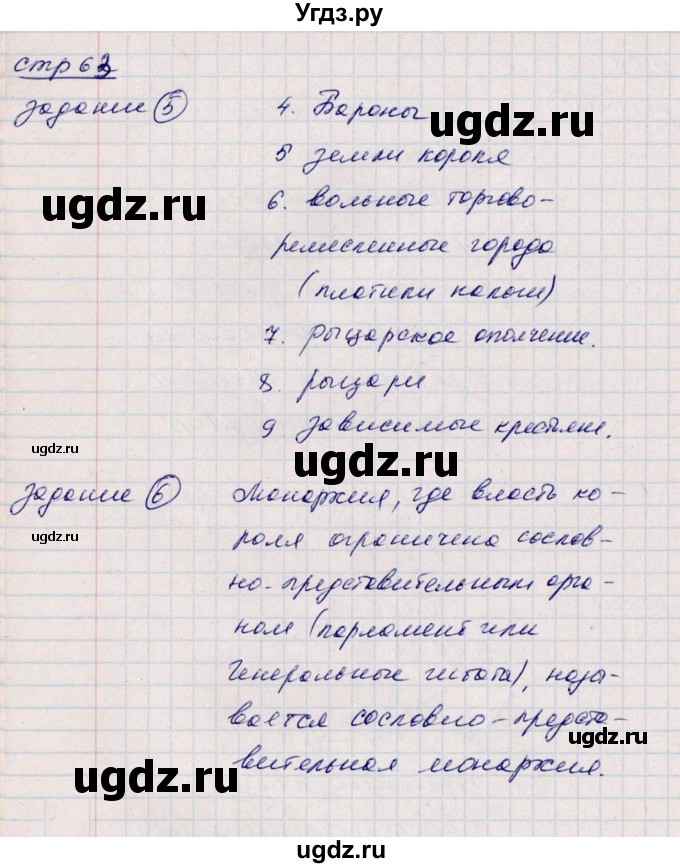 Угдз.ру
стр 63
задание 5
4. Бароны
ugdz.ru
5 земли короля
ugdz.ru
6. вольные торгово-
ремесленные города
(платили налоги)
7. рыцарское ополчение.
8. рыцари
ugdz.ru
9 зависимые крестьяне.
ugdz.ru
задание 6
Монархия, где власть ко-
ugdz.ru
роля ограничена сослов-
но-представительным орга-
ном (парламент или
Генеральные штаты), назы-
вается сословно-предста-
ugdz.ru
вительная монархия.
ugdz.ru
ugdz.ru